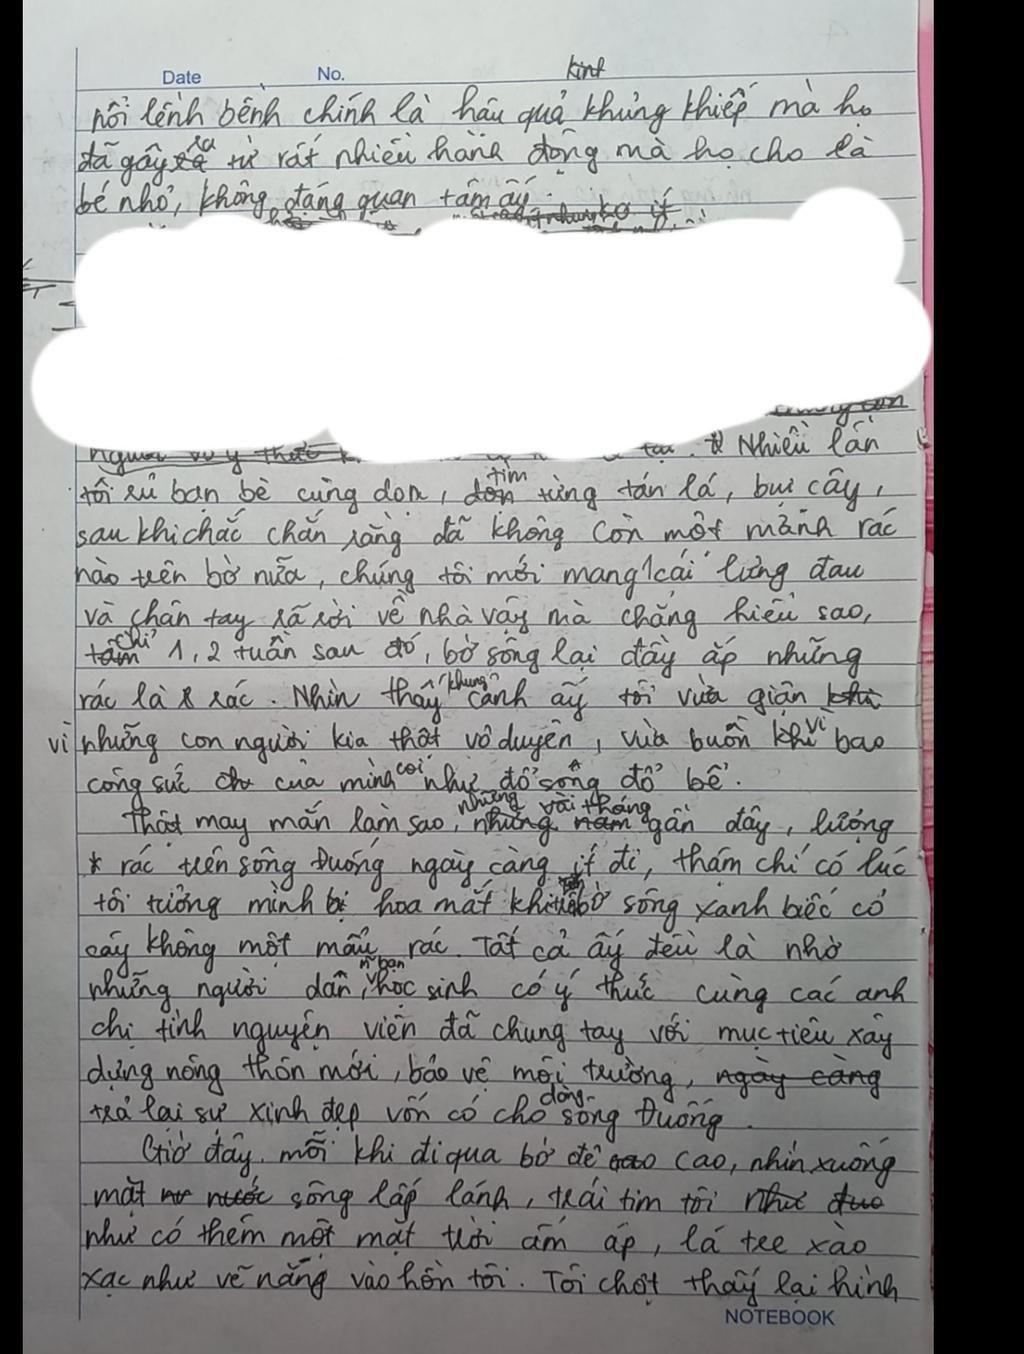 Date No. kinh
nổi lênh bênh chính là hậu quả khủng khiếp mà họ
đã gây ra từ rất nhiều hành động mà họ cho là
bé nhỏ, không đáng quan tâm ấy.
Nhiều lần
tôi rủ bạn bè cùng dọn, tìm từng tán lá, bụi cây,
sau khi chắc chắn rằng đã không còn một mảnh rác
nào trên bờ nữa, chúng tôi mới mang 1 cái lưng đau
và chân tay rã rời về nhà vậy mà chẳng hiểu sao,
chỉ 1, 2 tuần sau đó, bờ sông lại đầy ắp những
rác là rác. Nhìn thấy khung cảnh ấy tôi vừa giận
vì những con người kia thật vô duyên, vừa buồn vì bao
công sức của mình coi như đổ sông đổ bể.
Thật may mắn làm sao, những vài tháng gần đây, lượng
rác trên sông Đuống ngày càng ít đi, thậm chí có lúc
tôi tưởng mình bị hoa mắt khi bờ sông xanh biếc cỏ
cây không một mẩu rác. Tất cả ấy đều là nhờ
những người dân, n~ bạn học sinh có ý thức cùng các anh
chị tình nguyện viên đã chung tay với mục tiêu xây
dựng nông thôn mới, bảo vệ môi trường,
trả lại sự xinh đẹp vốn có cho dòng sông Đuống.
Giờ đây, mỗi khi đi qua bờ đê cao, nhìn xuống
mặt sông lấp lánh, trái tim tôi
như có thêm một mặt trời ấm áp, lá tre xào
xạc như vẽ nắng vào hồn tôi. Tôi chợt thấy lại hình
NOTEBOOK